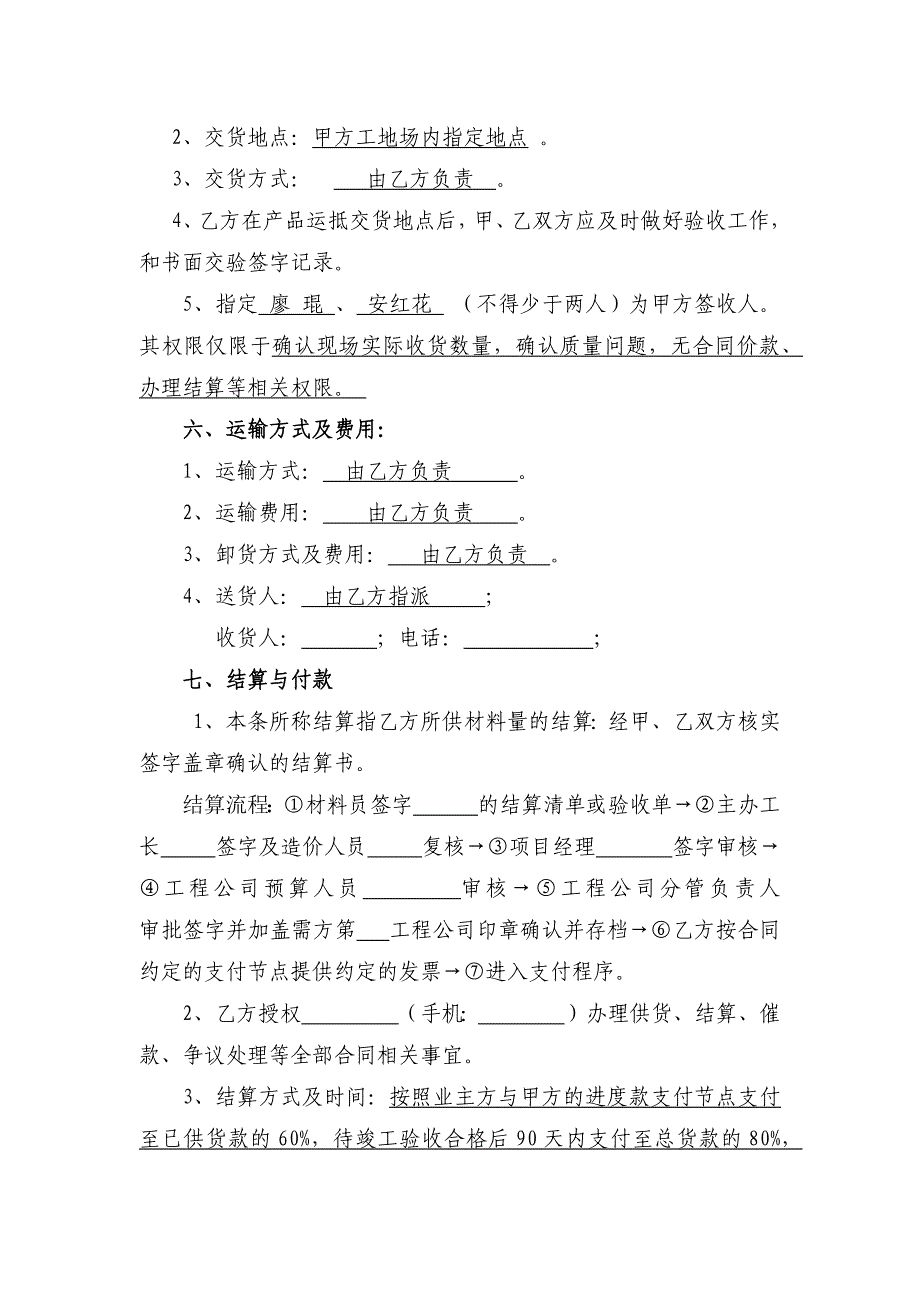 2、交货地点：甲方工地场内指定地点 。
3、交货方式： 由乙方负责 。
4、乙方在产品运抵交货地点后，甲、乙双方应及时做好验收工作，
和书面交验签字记录。
5、指定 廖 琨 、 安红花 （不得少于两人）为甲方签收人。
其权限仅限于确认现场实际收货数量，确认质量问题，无合同价款、
办理结算等相关权限。
六、运输方式及费用：
1、运输方式： 由乙方负责 。
2、运输费用： 由乙方负责 。
3、卸货方式及费用： 由乙方负责 。
4、送货人： 由乙方指派 ；
收货人：_______；电话：____________；
七、结算与付款
1、本条所称结算指乙方所供材料量的结算：经甲、乙双方核实
签字盖章确认的结算书。
结算流程：①材料员签字______的结算清单或验收单→②主办工
长_____签字及造价人员_____复核→③项目经理_______签字审核→
④工程公司预算人员_________审核→⑤工程公司分管负责人
审批签字并加盖需方第___工程公司印章确认并存档→⑥乙方按合同
约定的支付节点提供约定的发票→⑦进入支付程序。
2、乙方授权_________（手机：________）办理供货、结算、催
款、争议处理等全部合同相关事宜。
3、结算方式及时间：按照业主方与甲方的进度款支付节点支付
至已供货款的60%，待竣工验收合格后90天内支付至总货款的80%，